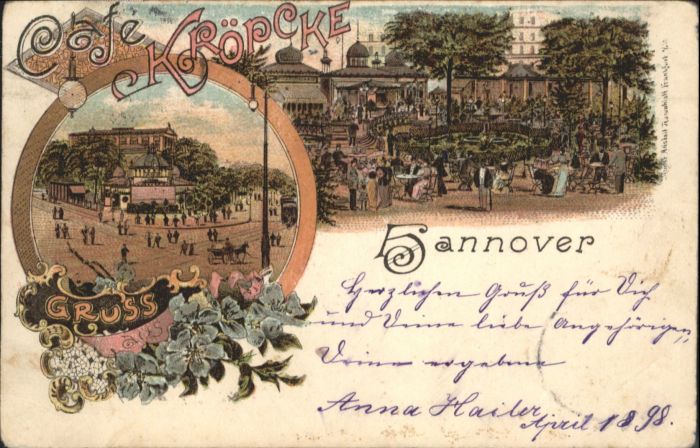 Cafe Kröpcke
Hannover
GRUSS
aus
Herzlichen Gruß für Dich
und Deine liebe Angehörigen,
Deine ergebene
Anna Hailer
April 1898.